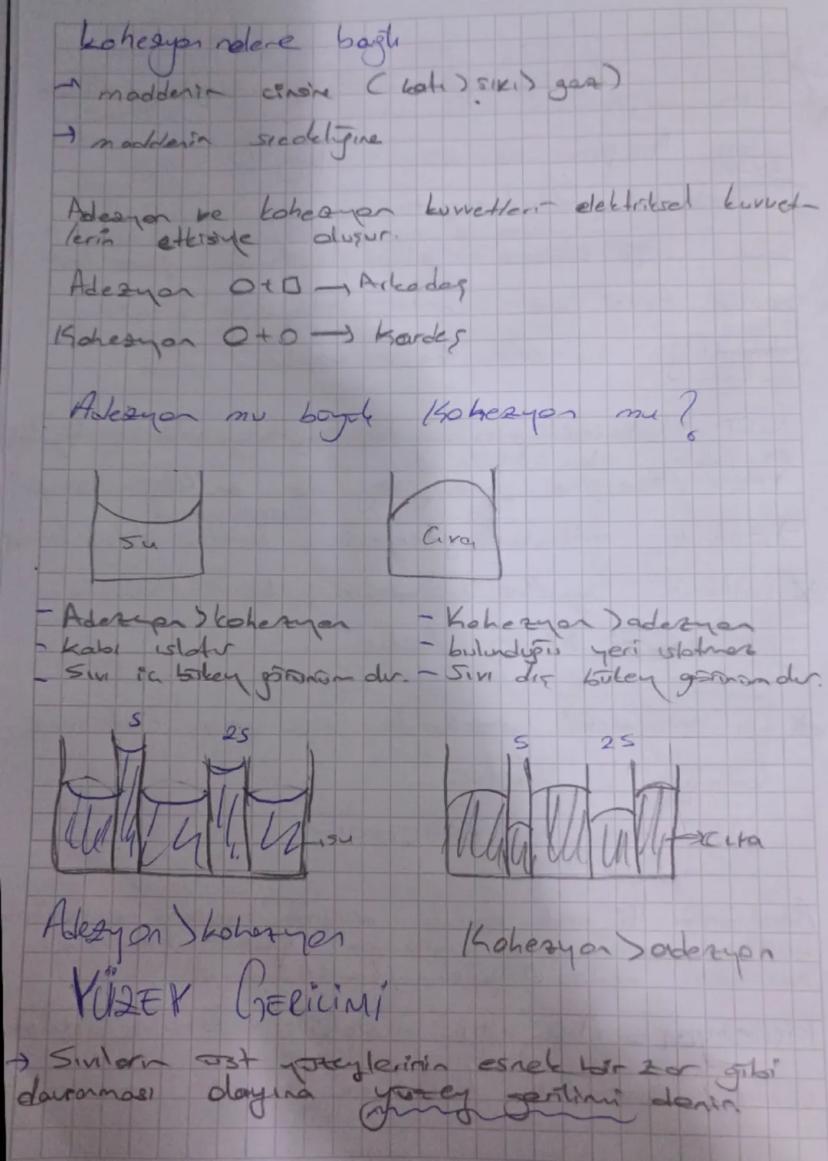 Kohezyon nelere bağlı
→ maddenin cinsine (katı > sıvı > gaz)
→ maddenin sıcaklığına
Adezyon ve kohezyon kuvvetleri elektriksel kuvvet-
lerin etkisiyle oluşur.
Adezyon O+□ → Arkadaş
Kohezyon O+O → Kardeş
Adezyon mu büyük Kohezyon mu?
Su Cıva
- Adezyon > kohezyon - Kohezyon > adezyon
- Kabı ıslatır - bulunduğu yeri ıslatmaz
- Sıvı iç büken görünümdür. - Sıvı dış büken görünümdür.
S 2S S 2S
su cıva
Adezyon > kohezyon Kohezyon > adezyon
YÜZEY GERİLİMİ
→ Sıvıların üst yüzeylerinin esnek bir zar gibi
davranması olayına yüzey gerilimi denir